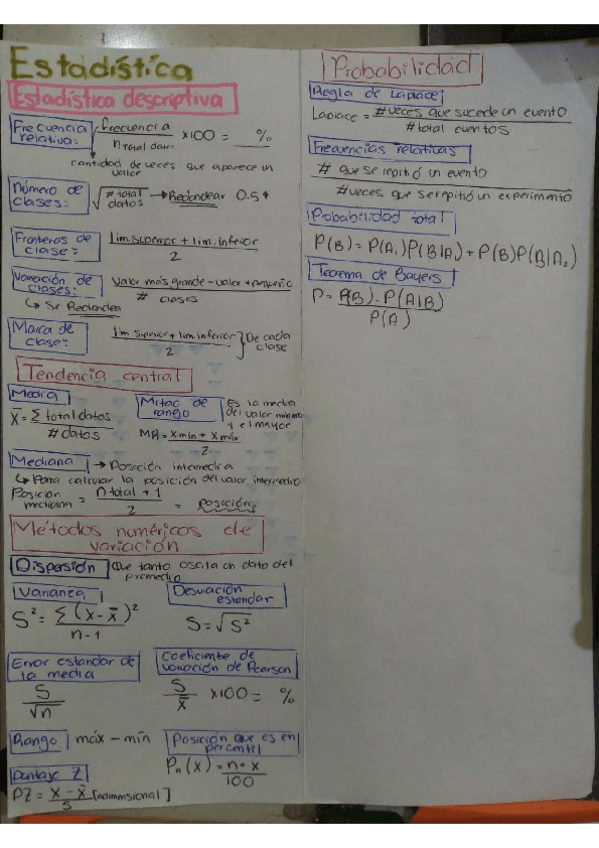 Estadística
Estadística descriptiva
Frecuencia relativa: frecuencia / n total datos x100 = %
cantidad de veces que aparece un valor
Número de clases: √# total datos → Redondear 0.5↑
Fronteras de clase = lim. superior + lim. inferior / 2
Variación de clases: Valor más grande - valor + pequeño / # clases
↳ Se Redondea
Marca de clase: lim superior + lim. inferior / 2 } De cada clase
Tendencia central
Media
x̄ = Σ total datos / # datos
Mitad de rango
Es la media del valor mínimo y el mayor
MR = xmin + xmáx / 2
Mediana → Posición intermedia
↳ Para calcular la posición del valor intermedio
Posición mediana = n total + 1 / 2 = posición
Métodos numéricos de variación
Dispersión Que tanto oscila un dato del promedio
Varianza
S² = Σ(x-x̄)² / n-1
Desviación estandar
S = √S²
Error estandar de la media
S / √n
Coeficiente de variación de Pearson
S / x̄ x100 = %
Rango máx - mín
Posición que es en percentil
Pn(x) = n·x / 100
puntaje Z
PZ = x - x̄ / S [adimensional]
Probabilidad
Regla de Laplace
Laplace = # veces que sucede un evento / # total eventos
Frecuencias relativas
# que se repitió un evento / # veces que se repitió un experimento
Probabilidad total
P(B) = P(A₁)P(B|A₁) + P(B)P(B|A₂)
Teorema de Bayers
P = P(B) · P(A|B) / P(A)